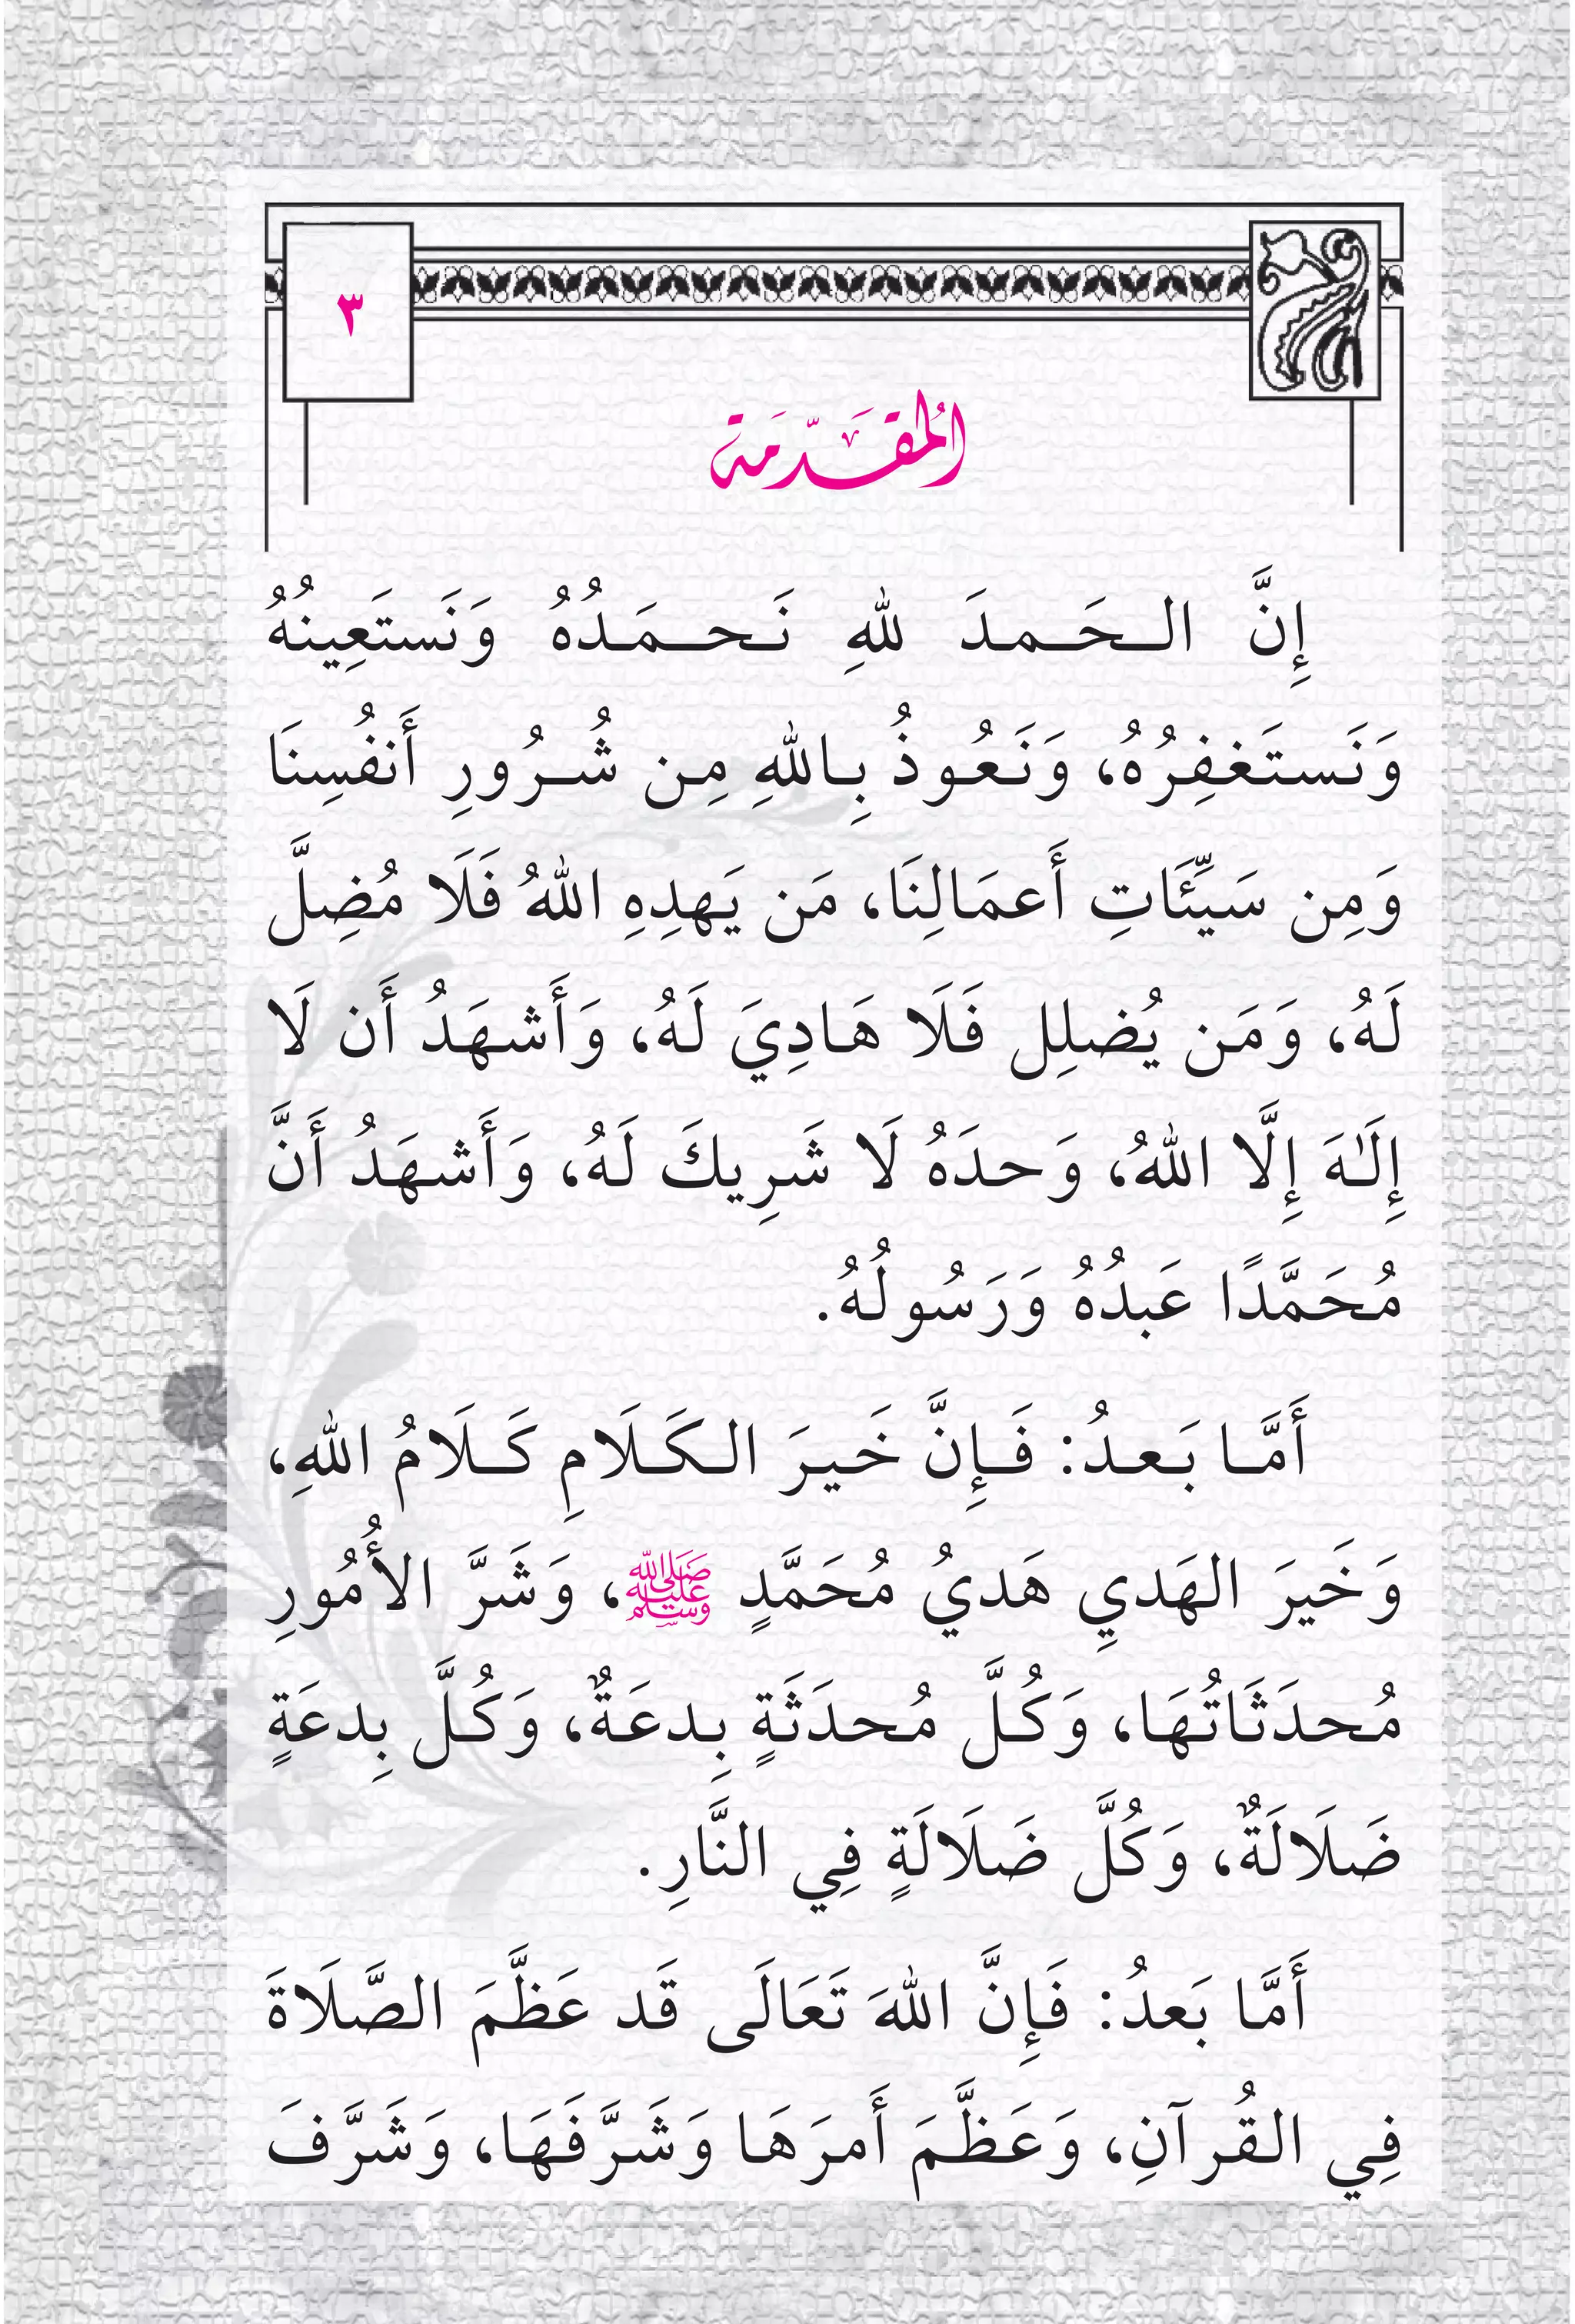 ٣
المُقَدِّمَة
إِنَّ الحَمدَ للهِ نَحمَدُهُ وَنَستَعِينُهُ
وَنَستَغفِرُهُ، وَنَعُوذُ بِاللهِ مِن شُرُورِ أَنفُسِنَا
وَمِن سَيِّئَاتِ أَعمَالِنَا، مَن يَهدِهِ اللهُ فَلَا مُضِلَّ
لَهُ، وَمَن يُضلِل فَلَا هَادِيَ لَهُ، وَأَشهَدُ أَن لَا
إِلَٰهَ إِلَّا اللهُ، وَحدَهُ لَا شَرِيكَ لَهُ، وَأَشهَدُ أَنَّ
مُحَمَّدًا عَبدُهُ وَرَسُولُهُ.
أَمَّا بَعدُ: فَإِنَّ خَيرَ الكَلَامِ كَلَامُ اللهِ،
وَخَيرَ الهَديِ هَديُ مُحَمَّدٍ ﷺ، وَشَرَّ الأُمُورِ
مُحدَثَاتُهَا، وَكُلَّ مُحدَثَةٍ بِدعَةٌ، وَكُلَّ بِدعَةٍ
ضَلَالَةٌ، وَكُلَّ ضَلَالَةٍ فِي النَّارِ.
أَمَّا بَعدُ: فَإِنَّ اللهَ تَعَالَى قَد عَظَّمَ الصَّلَاةَ
فِي القُرآنِ، وَعَظَّمَ أَمرَهَا وَشَرَّفَهَا، وَشَرَّفَ